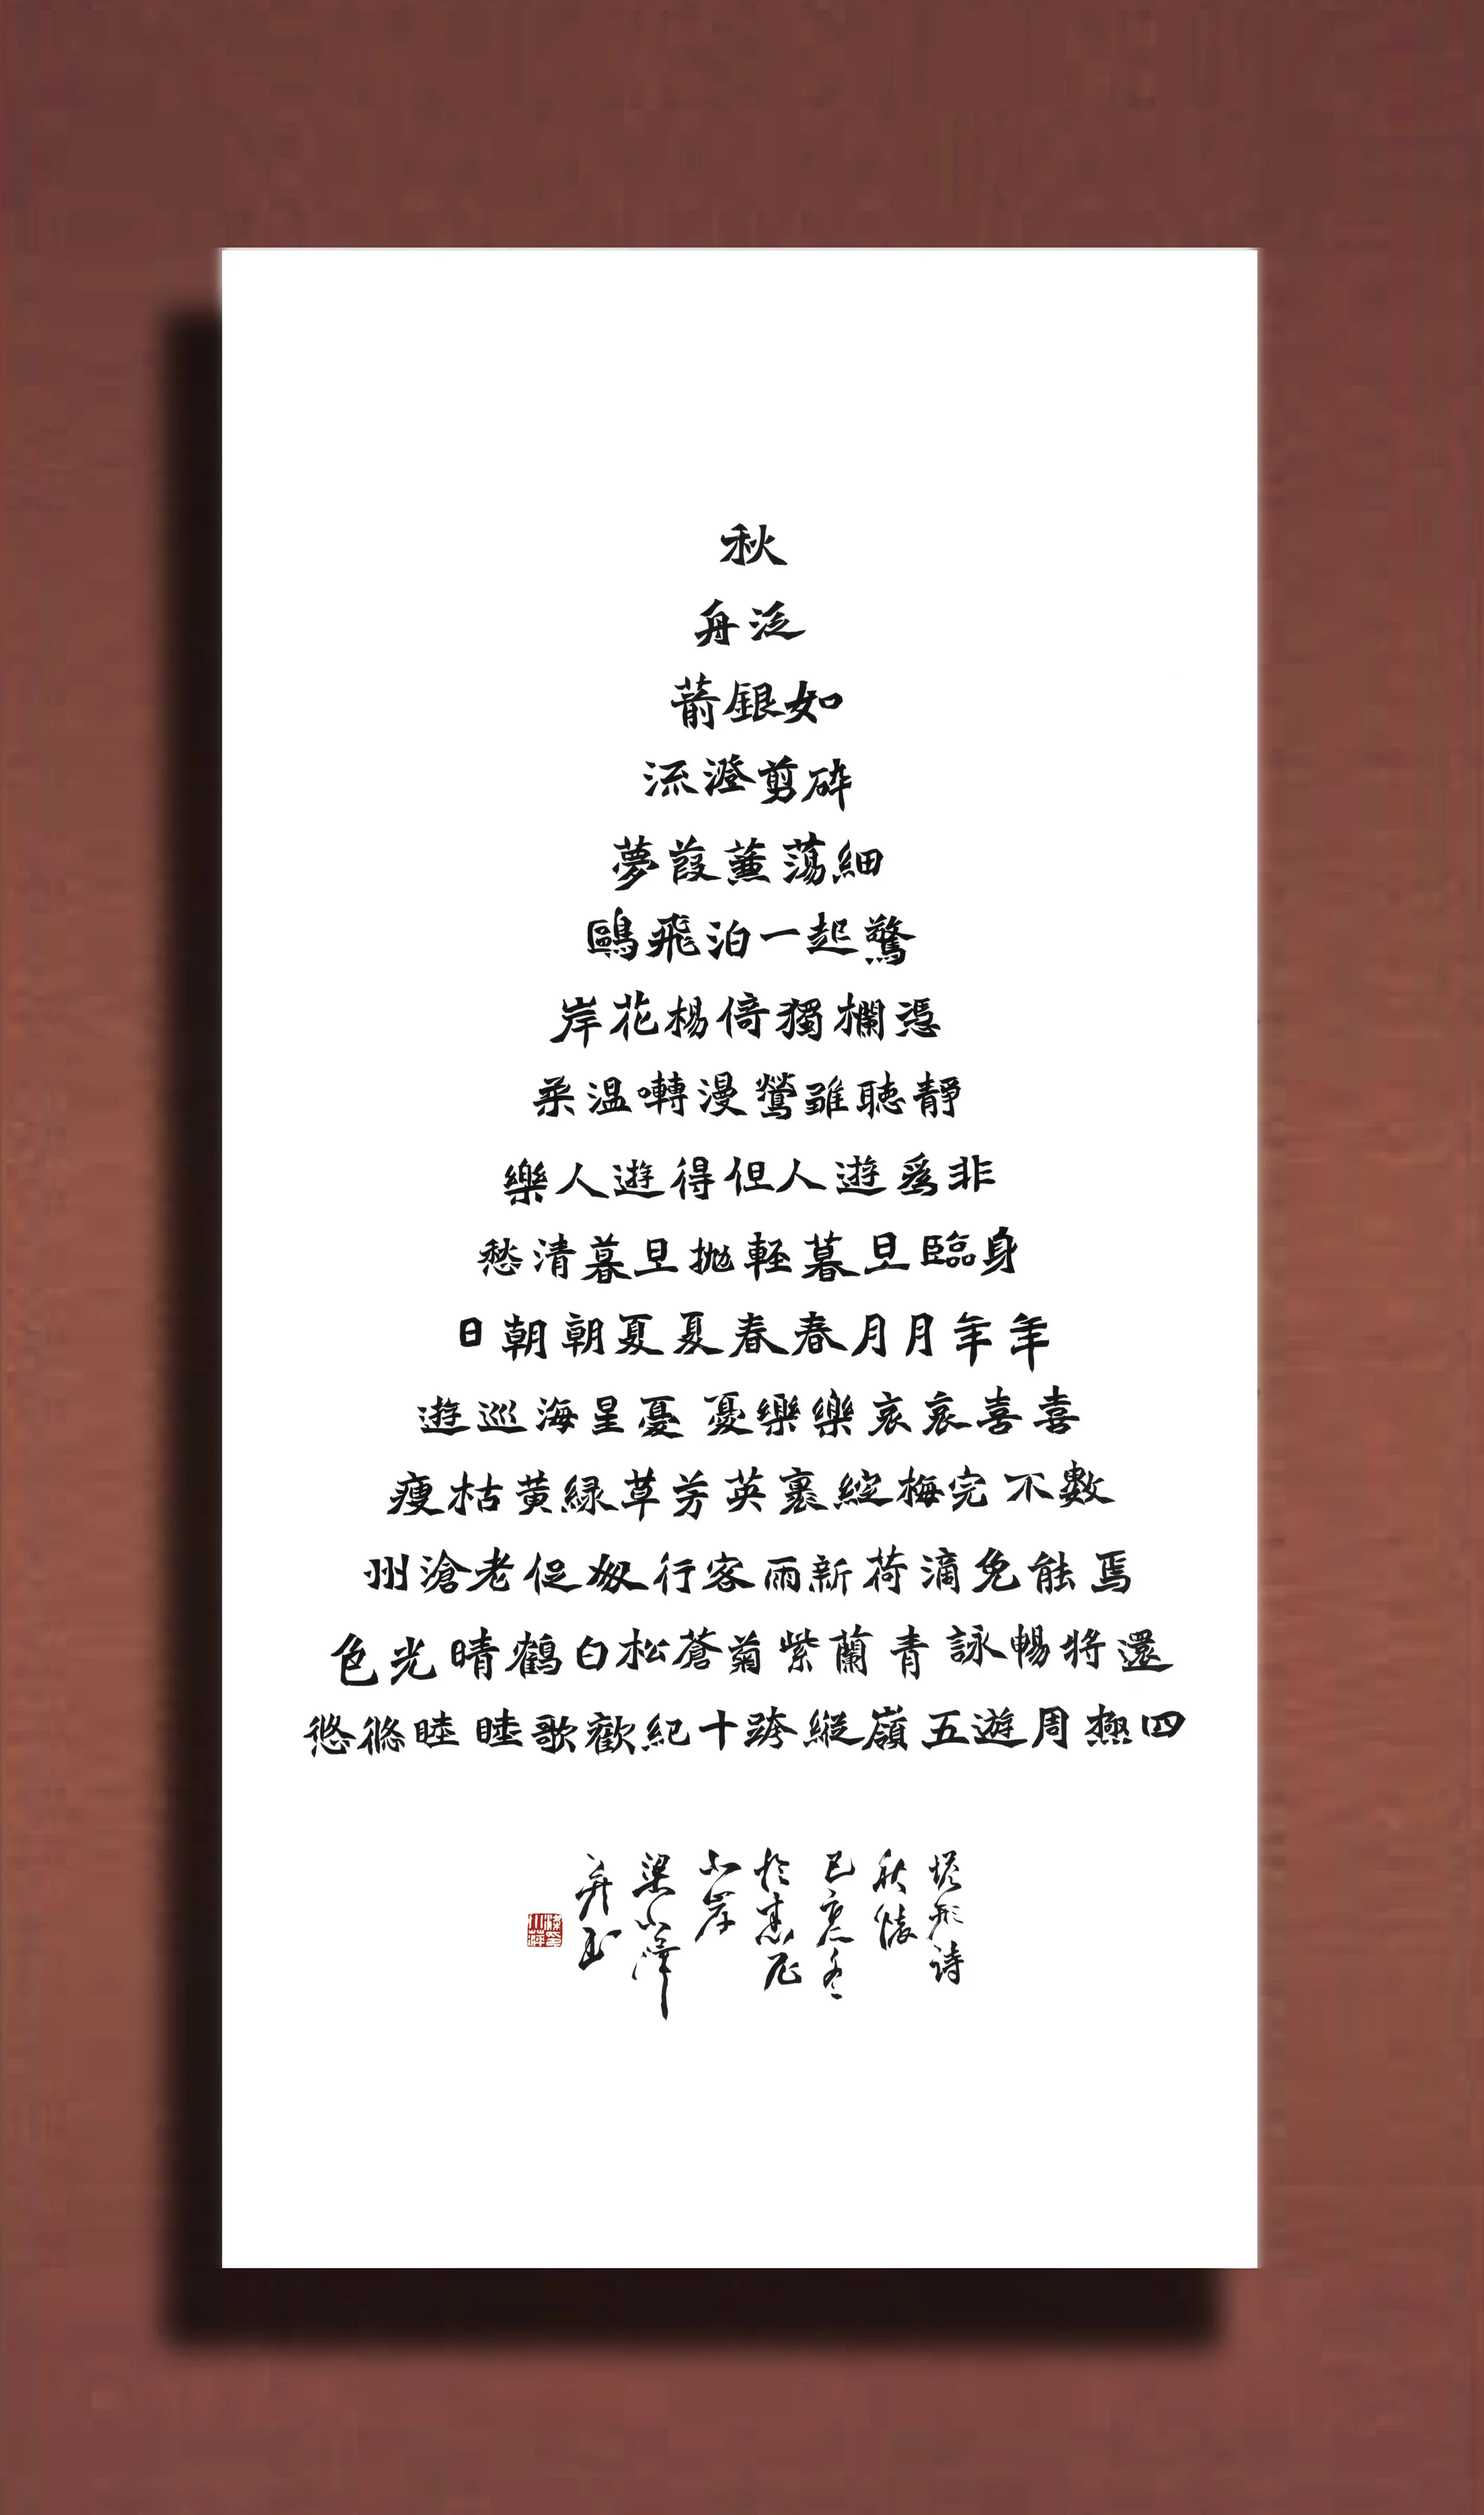 秋
泛舟
如銀箭
碎剪澄流
細蕩蒹葭夢
驚起一泊飛鷗
憑欄獨倚楊花岸
靜聽雖鶯漫囀温柔
非爲遊人但得遊人樂
身臨旦暮輕抛旦暮清愁
年年月月春春夏夏朝朝日
喜喜哀哀樂樂憂憂星海巡遊
數不完梅綻裹英芳草緑黄枯瘦
焉能免滴荷新雨客行匆促老滄州
還將暢詠青蘭紫菊蒼松白鶴晴光色
四極周遊五嶺縱跨十紀歡歌睦睦悠悠
塔形詩
秋懷
己亥冬
於悉尼
北岸
梁小萍
并書